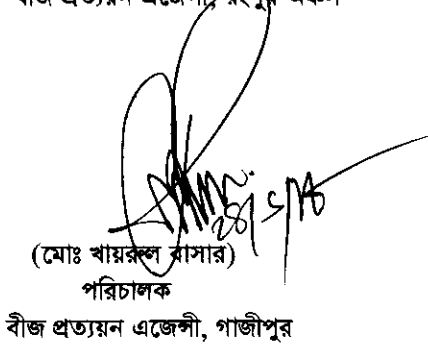 বীজ প্রত্যয়ন এজেন্সী, রংপুর অঞ্চল
(মোঃ খায়রুল বাসার)
পরিচালক
বীজ প্রত্যয়ন এজেন্সী, গাজীপুর